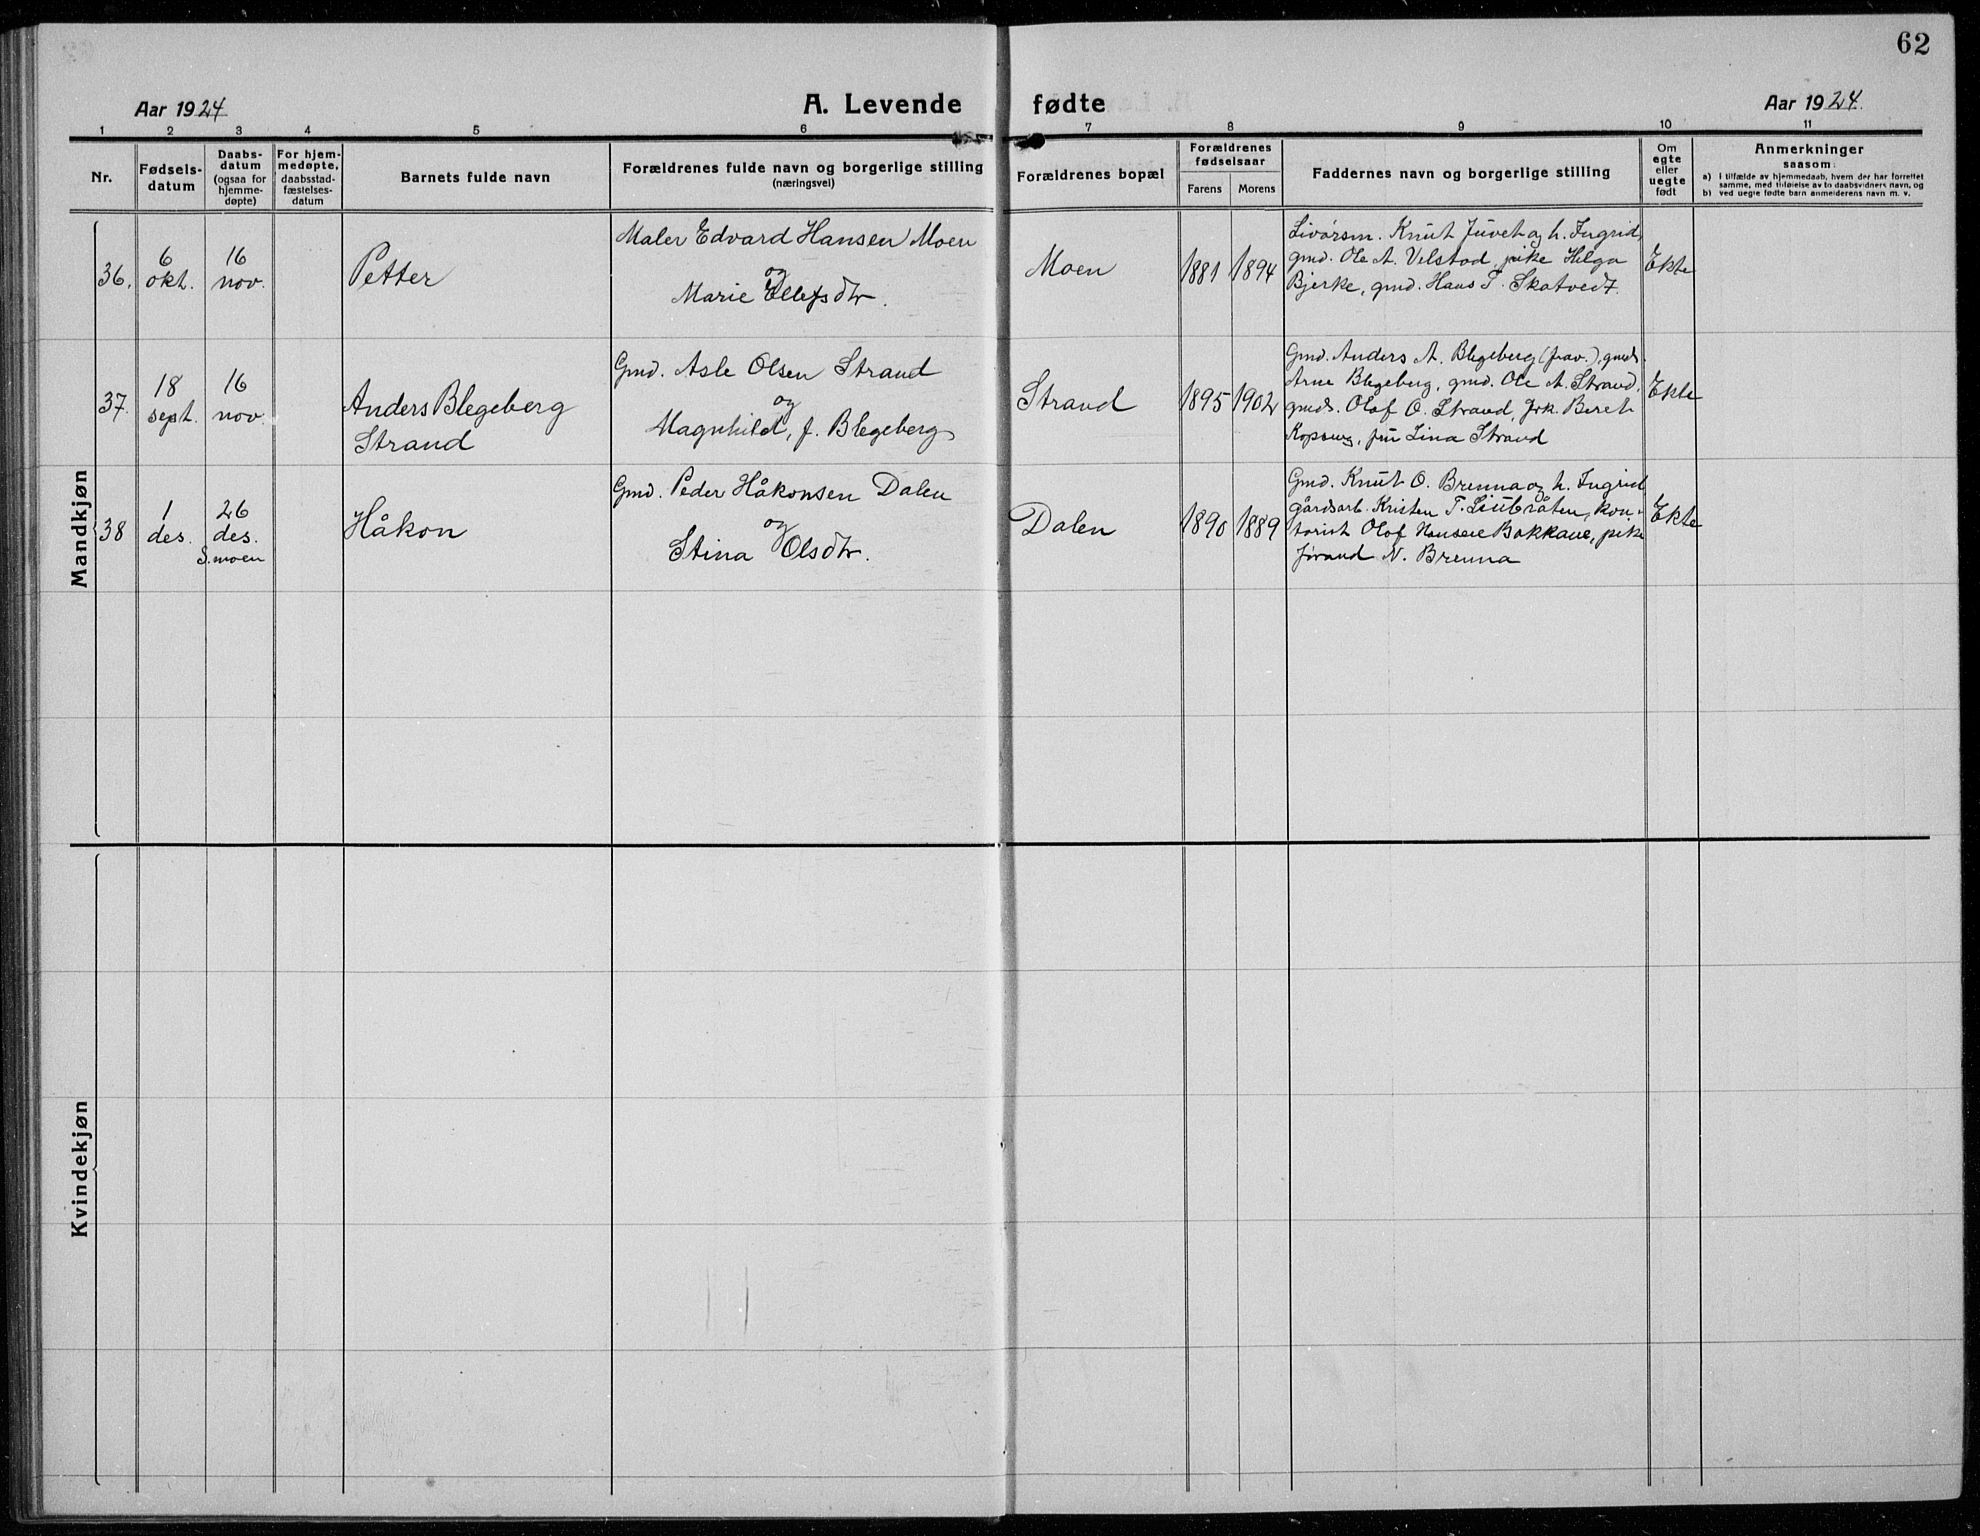 62
Aar 1924 A. Levende fødte Aar 1924.
1 2 3 4 5 6 7 8 9 10 11
Nr.
Fødsels-
datum
Daabs-
datum
(ogsaa for
hjemme-
døpte)
For hjem-
medøpte,
daabsstad-
fæstelses-
datum
Barnets fulde navn
Forældrenes fulde navn og borgerlige stilling
(næringsvei)
Forældrenes bopæl
Forældrenes
fødselsaar
Farens Morens
Faddernes navn og borgerlige stilling
Om
egte
eller
uegte
født
Anmerkninger
saasom:
a) I tilfælde av hjemmedaab, hvem der har forrettet
samme, med tilføielse av to daabsvidners navn, og
b) ved uegte fødte barn anmelderens navn m. v.
Mandkjøn
36.
6
okt.
16
nov.
Petter
Maler Edvard Hansen Moen
og
Marie Ellefsdtr.
Moen
1881 1894
Knut Juvet og h. Ingrid,
gmd. Ole A. Velstad, pike Helga
Bjerke, gmd. Hans T. Skatvedt.
Ekte
37.
18
sept.
16
nov.
Anders Blegeberg
Strand
Gmd. Asle Olsen Strand
og
Magnhild, f. Blegeberg
Strand
1895 1902
Gmd. Anders A. Blegeberg (frav.), gmds.
Arne Blegeberg, gmd. Ole A. Strand,
gmds. Olaf O. Strand, frk. Beret
fru Lina Strand
Ekte
38
1
des.
26
des.
S.moen
Håkon
Gmd. Peder Håkonsen Dalen
og
Stina Olsdtr.
Dalen
1890 1889
Gmd. Knut O. Brenna og h. Ingrid
gårdsarb. Kristen T. Liubråten, kon-
torist Olaf Hansen Bakkane, pike
Jørand N. Brenna
Ekte
Kvindekjøn